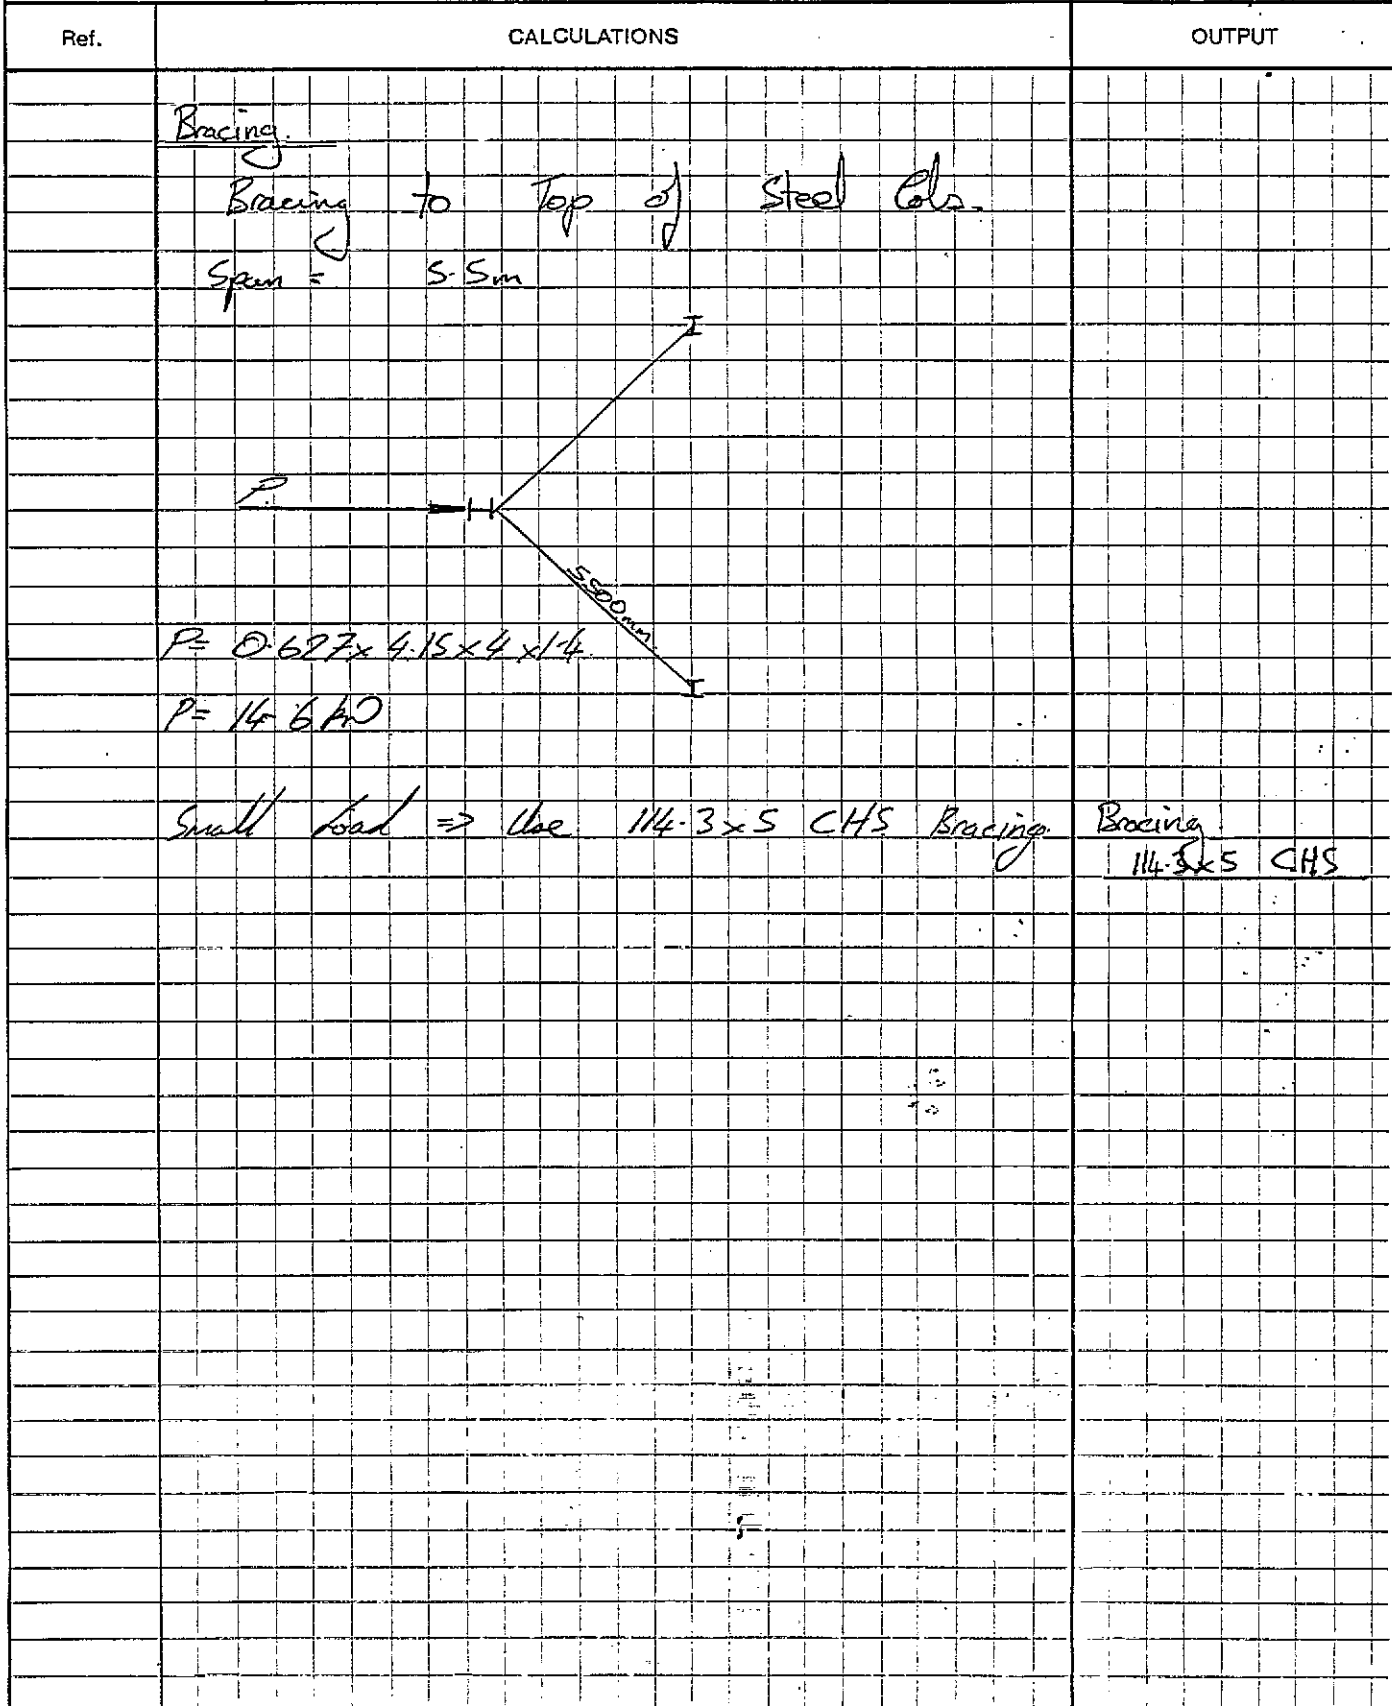 Ref. CALCULATIONS OUTPUT
Bracing.
Bracing to Top of Steel Cols.
Span = 5.5m
P
5500mm
P= 0.627 x 4.15 x 4 x 1.4
P= 14.6 kN
Small Load => Use 114.3 x 5 CHS Bracing.
Bracing.
114.3 x 5 CHS